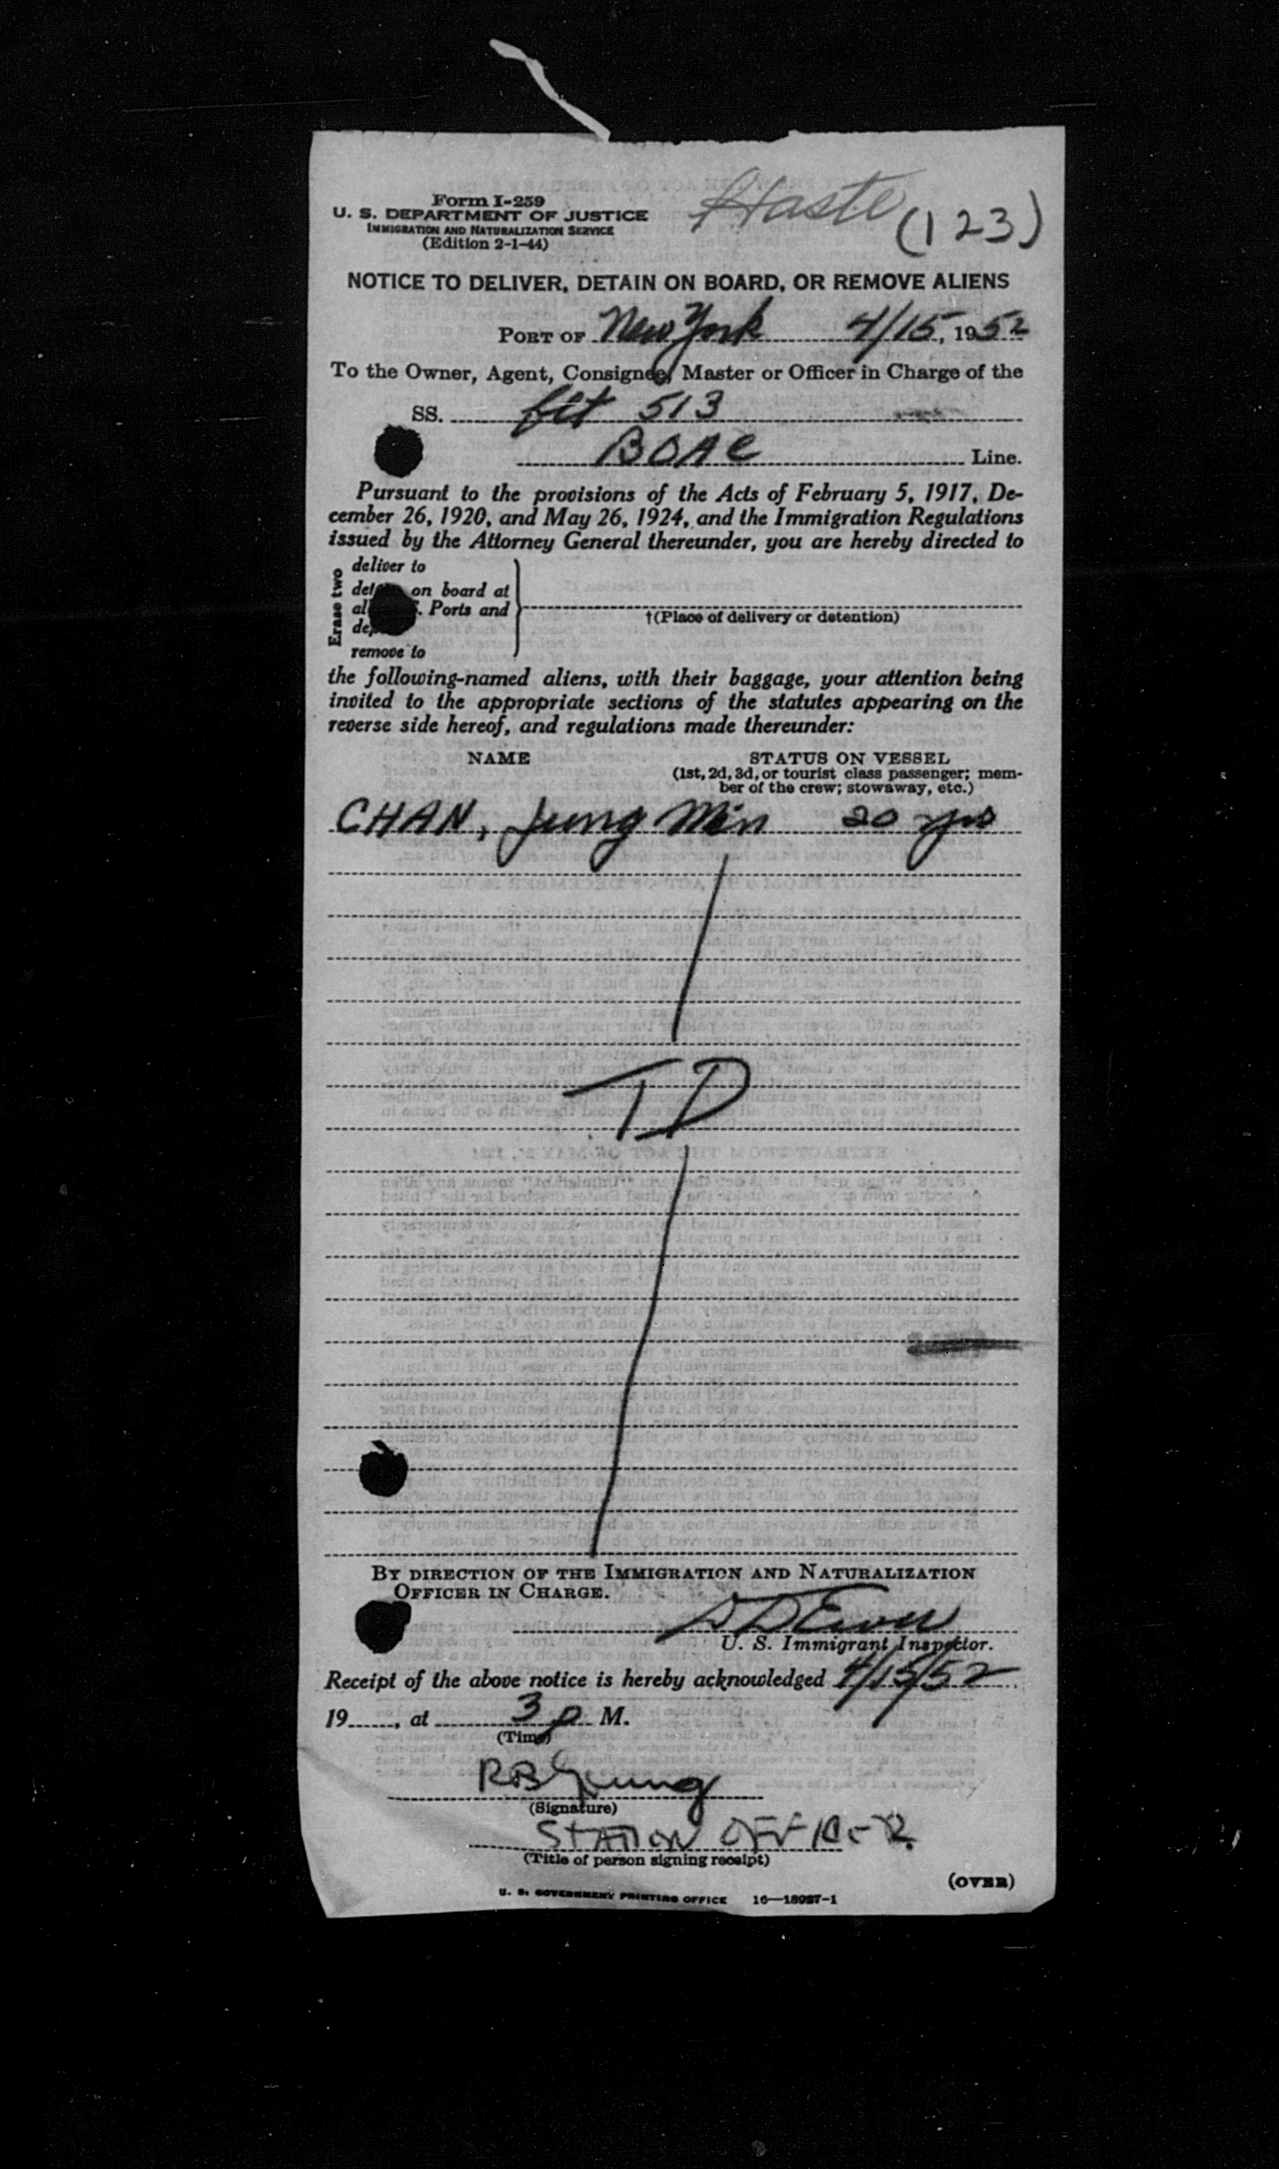 Form I-259
U. S. DEPARTMENT OF JUSTICE
IMMIGRATION AND NATURALIZATION SERVICE
(Edition 2-1-44)
Haste (123)
NOTICE TO DELIVER, DETAIN ON BOARD, OR REMOVE ALIENS
PORT OF New York 4/15, 1952
To the Owner, Agent, Consignee, Master or Officer in Charge of the
SS. flt 513
BOAC Line.
Pursuant to the provisions of the Acts of February 5, 1917, De-
cember 26, 1920, and May 26, 1924, and the Immigration Regulations
issued by the Attorney General thereunder, you are hereby directed to
Erase two
deliver to
on board at
Ports and
remove to
†(Place of delivery or detention)
the following-named aliens, with their baggage, your attention being
invited to the appropriate sections of the statutes appearing on the
reverse side hereof, and regulations made thereunder:
NAME STATUS ON VESSEL
(1st, 2d, 3d, or tourist class passenger; mem-
ber of the crew; stowaway, etc.)
CHAN, Jung Min 20 yrs
TD
BY DIRECTION OF THE IMMIGRATION AND NATURALIZATION
OFFICER IN CHARGE.
U. S. Immigrant Inspector.
Receipt of the above notice is hereby acknowledged 4/15/52
19......, at 3 p M.
(Time)
(Signature)
STATION OFFICER.
(Title of person signing receipt)
(OVER)
U. S. GOVERNMENT PRINTING OFFICE 16—18987-1